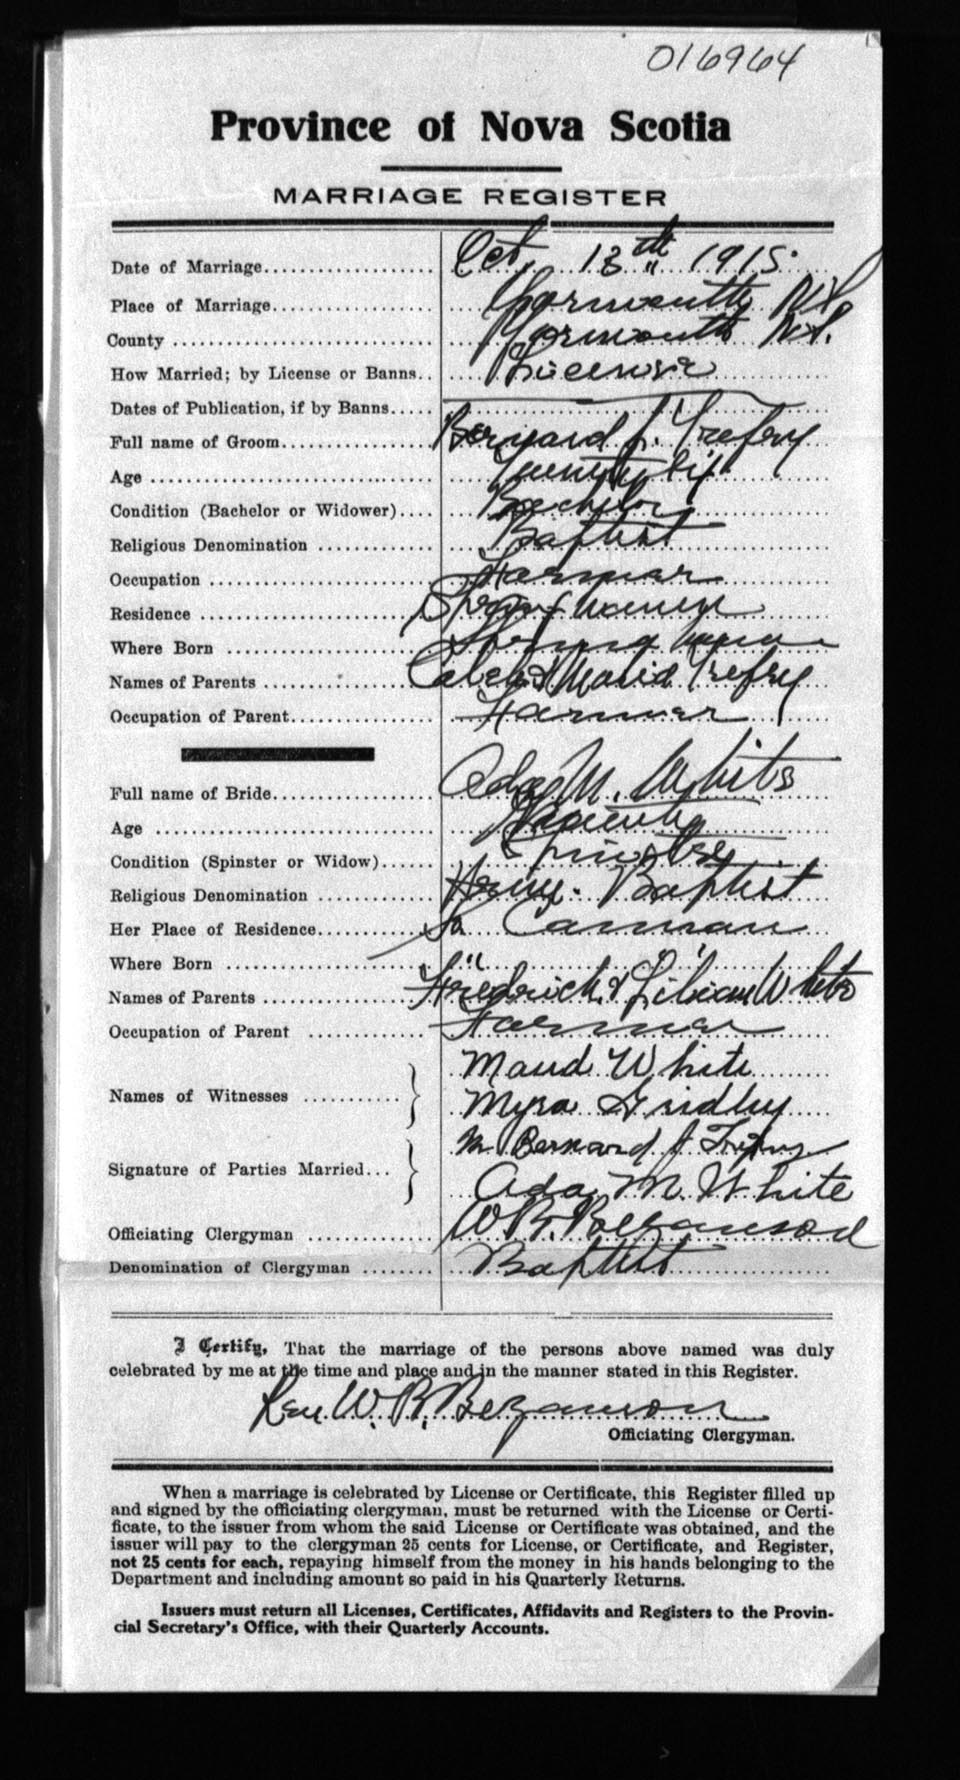 016964
Province of Nova Scotia
MARRIAGE REGISTER
Date of Marriage.................... Oct. 13th 1915.
Place of Marriage................... Yarmouth N.S.
County .............................. Yarmouth N.S.
How Married; by License or Banns.. License
Dates of Publication, if by Banns.....
Full name of Groom................... Bernard J. Trefry
Age .................................. Twenty Six
Condition (Bachelor or Widower).... Bachelor
Religious Denomination ............. Baptist
Occupation .......................... Farmer
Residence ...........................
Where Born .........................
Names of Parents .................... Caleb & Maria Trefry
Occupation of Parent................. Farmer
Full name of Bride................... Ada M. White
Age ..................................
Condition (Spinster or Widow)...... Spinster
Religious Denomination ............. Baptist
Her Place of Residence............... So
Where Born ......................... " "
Names of Parents .................... Fredrick & Lilian White
Occupation of Parent ............... Farmer
Names of Witnesses ........... Maud White
Myra Gridley
Signature of Parties Married... Bernard J Trefry
Ada M. White
Officiating Clergyman .............. W. R. Bezanson
Denomination of Clergyman ........ Baptist
I Certify, That the marriage of the persons above named was duly
celebrated by me at the time and place and in the manner stated in this Register.
Rev. W. R. Bezanson
Officiating Clergyman.
When a marriage is celebrated by License or Certificate, this Register filled up
and signed by the officiating clergyman, must be returned with the License or Certi-
ficate, to the issuer from whom the said License or Certificate was obtained, and the
issuer will pay to the clergyman 25 cents for License, or Certificate, and Register,
not 25 cents for each, repaying himself from the money in his hands belonging to the
Department and including amount so paid in his Quarterly Returns.
Issuers must return all Licenses, Certificates, Affidavits and Registers to the Provin-
cial Secretary's Office, with their Quarterly Accounts.